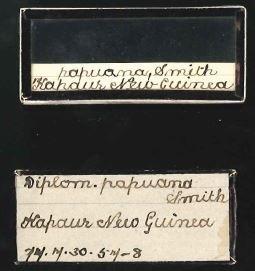 papuana, Smith
Kapaur New Guinea
Diplom. papuana
Smith
Kapaur New Guinea